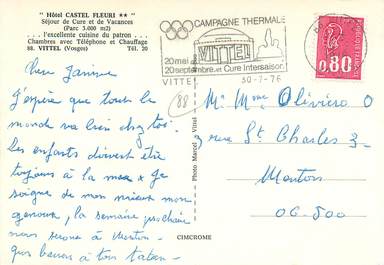 "Hôtel CASTEL FLEURI ★★"
Séjour de Cure et de Vacances
(Parc 3.000 m2)
... l'excellente cuisine du patron ...
Chambres avec Téléphone et Chauffage
88. VITTEL (Vosges) Tél. 20
CAMPAGNE THERMALE
VITTEL
20 mai au
20 septembre et Cure Intersaison
VITTEL
30-7-76
0,80
Chère Jannine
J'espère que tout le
monde va bien chez toi.
Les enfants doivent être
toujours à la mer. Je
soigne de mon mieux mon
genoux, la semaine prochaine
nous serons à Menton.
Gros baisers à tous
88
Photo Marcel Vittel
CIMCROME
M. Mme Oliviero O
3 rue St Charles 3-
Menton
06-500